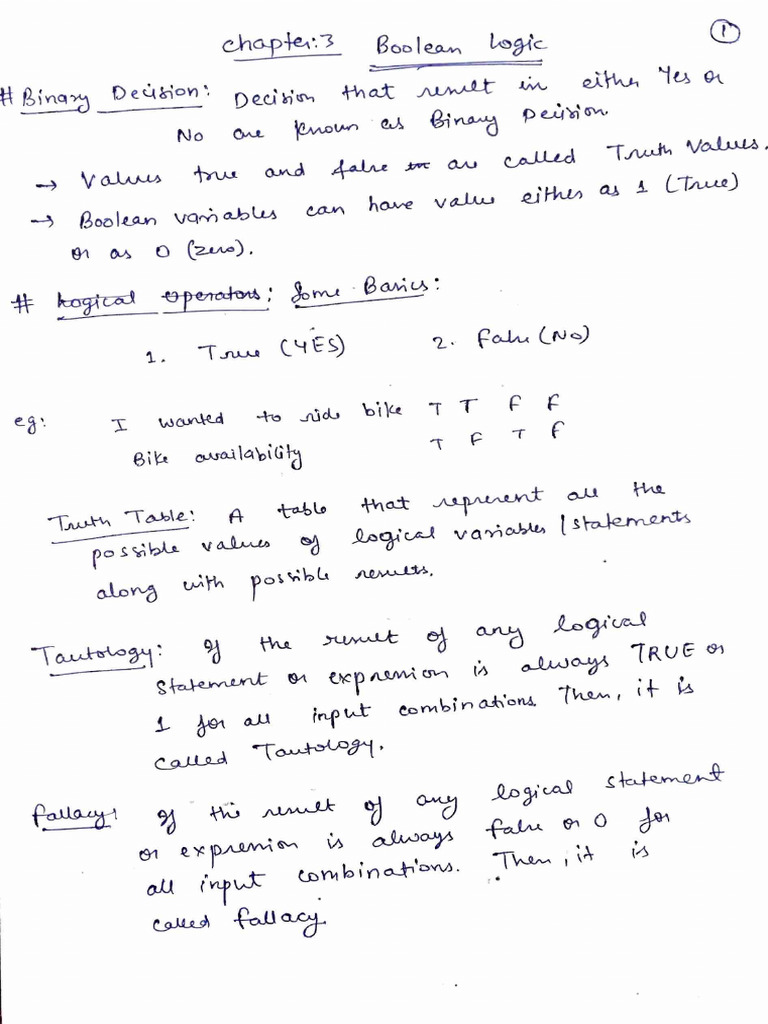 Chapter:3 Boolean Logic
1
# Binary Decision: Decision that result in either Yes or
No are known as Binary Decision.
→ Values true and false are called Truth Values.
→ Boolean variables can have value either as 1 (True)
or as 0 (zero).
# Logical Operators: Some Basics:
1. True (YES) 2. False (No)
eg: I wanted to ride bike T T F F
Bike availability T F T F
Truth Table: A table that represent all the
possible values of logical variables / statements
along with possible results.
Tautology: If the result of any logical
statement or expression is always TRUE or
1 for all input combinations. Then, it is
called Tautology.
Fallacy: If the result of any logical statement
or expression is always false or 0 for
all input combinations. Then, it is
called fallacy.